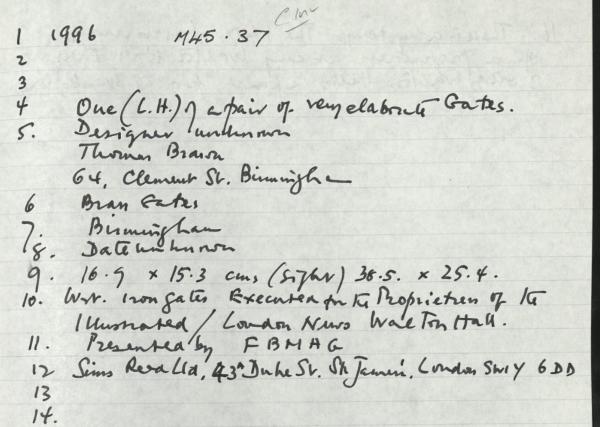 1 1996 M45.37
2
3
4 One (L.H.) of a pair of very elaborate Gates.
5. Designer unknown
Thomas Brawn
64, Clement St. Birmingham
6 Gates
7. Birmingham
8. Date unknown
9. 16.9 x 15.3 cms (Sight) 38.5. x 25.4.
10. Wrt. Iron gates Executed for the Proprietors of the
Illustrated / London News Walton Hall.
11. Presented by FBMAG
12 Sims Reed Ltd, 43A Duke St. St James', London SW1Y 6DD
13
14.